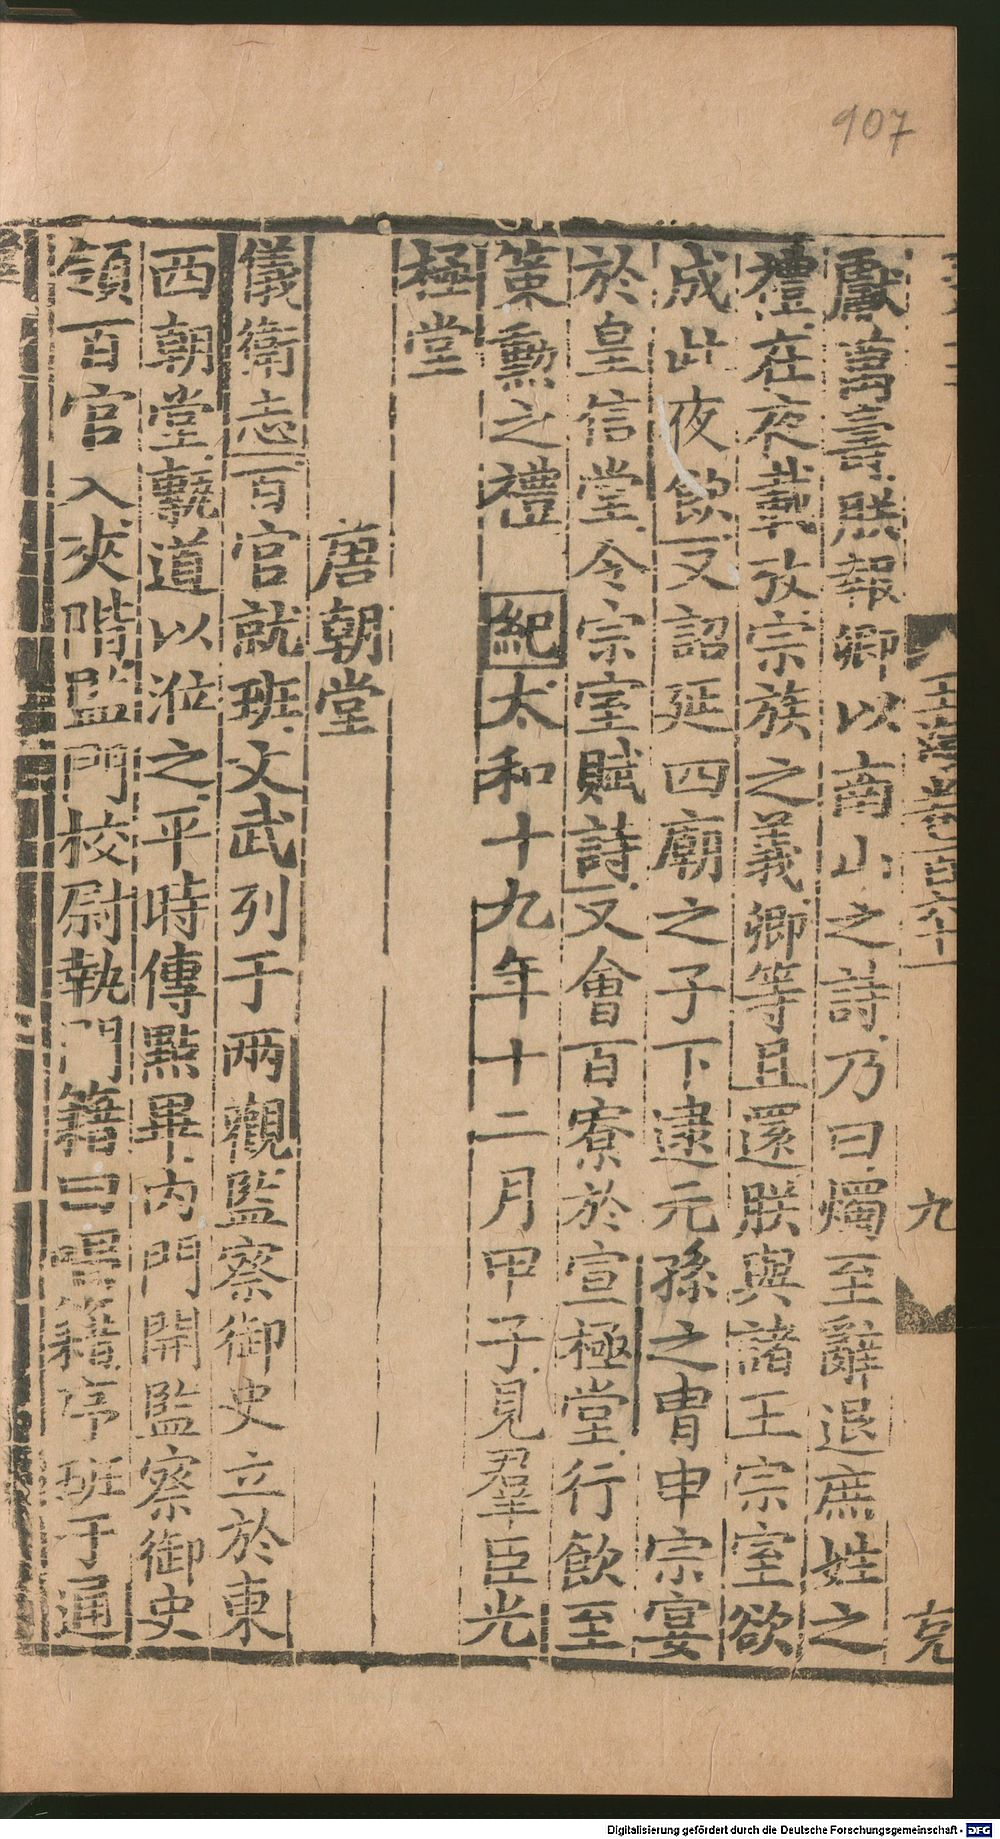 907
玉海卷百六十一
九
克
獻萬壽朕報卿以南山之詩乃曰燭至辭退庶姓之
禮在夜載攷宗族之義卿等且還朕與諸王宗室欲
成此夜飲又詔延四廟之子下逮元孫之胄申宗宴
於皇信堂令宗室賦詩又會百寮於宣極堂行飲至
策勳之禮 紀太和十九年十二月甲子見羣臣光
極堂
唐朝堂
儀衛志百官就班文武列于兩觀監察御史立於東
西朝堂甎道以涖之平時傳點畢內門開監察御史
領百官入夾階監門校尉執門籍曰唱籍序班于通
Digitalisierung gefördert durch die Deutsche Forschungsgemeinschaft - DFG